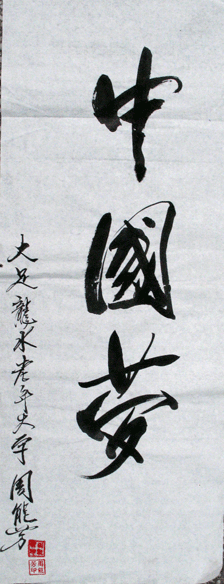 中國夢
大足龍水老年大学周能芳